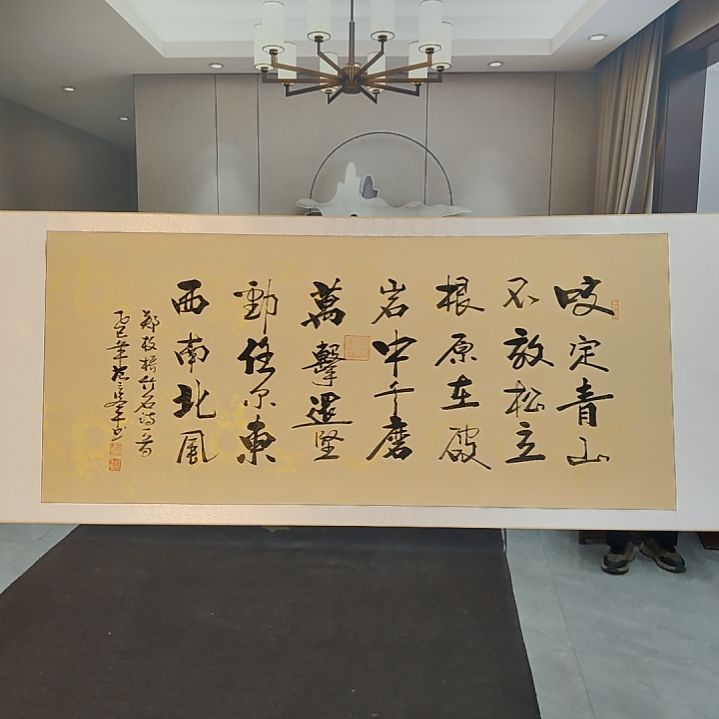 咬定青山
不放松立
根原在破
岩中千磨
萬擊還堅
勁任尔東
西南北風
郑板橋竹石诗一首
乙巳年